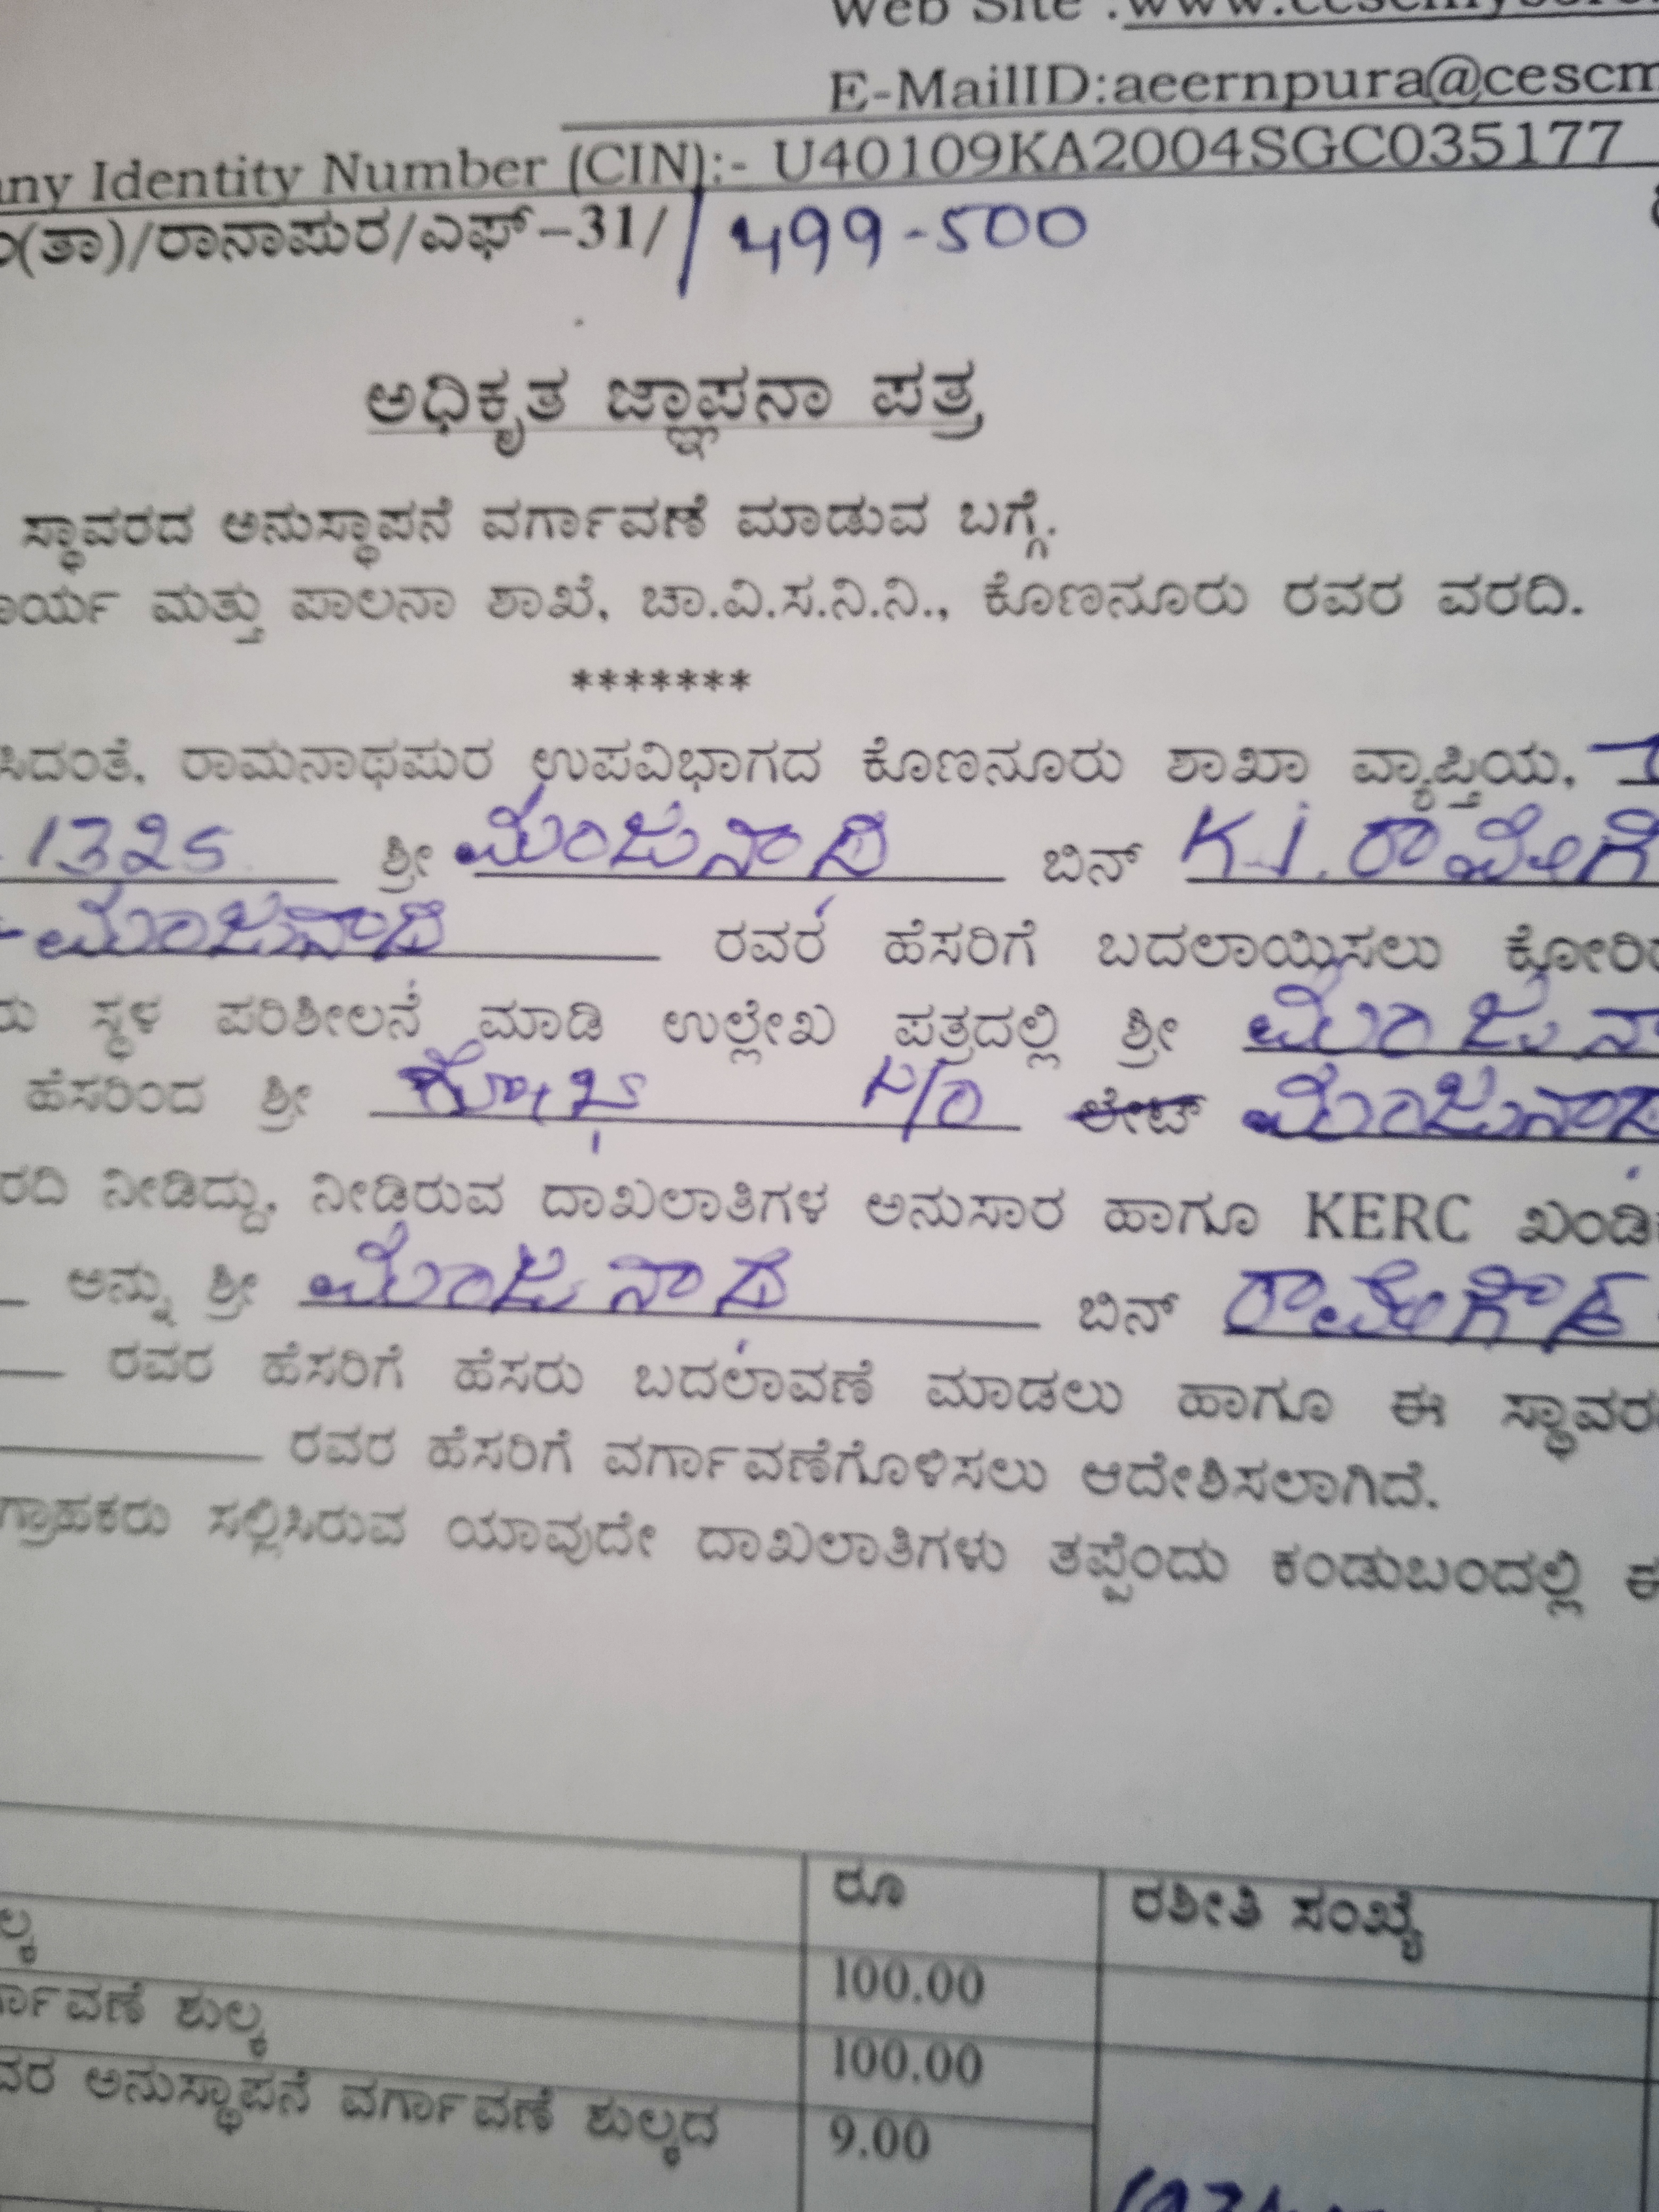 Web Site :www.cescmysore
E-MailID:aeernpura@cescm
any Identity Number (CIN):- U40109KA2004SGC035177
(ತಾ)/ರಾನಾಪುರ/ಎಫ್-31/ / 499-500
ಅಧಿಕೃತ ಜ್ಞಾಪನಾ ಪತ್ರ
ಸ್ಥಾವರದ ಅನುಸ್ಥಾಪನೆ ವರ್ಗಾವಣೆ ಮಾಡುವ ಬಗ್ಗೆ.
ಾರ್ಯ ಮತ್ತು ಪಾಲನಾ ಶಾಖೆ, ಚಾ.ವಿ.ಸ.ನಿ.ನಿ., ಕೊಣನೂರು ರವರ ವರದಿ.
*******
ಸಿದಂತೆ, ರಾಮನಾಥಪುರ ಉಪವಿಭಾಗದ ಕೊಣನೂರು ಶಾಖಾ ವ್ಯಾಪ್ತಿಯ,
1325 ಶ್ರೀ ಮಂಜುನಾಥ ಬಿನ್ K.J. ರಾಮೇಗೌ
ಮಂಜುನಾಥ ರವರ ಹೆಸರಿಗೆ ಬದಲಾಯಿಸಲು ಕೋರಿ
ರು ಸ್ಥಳ ಪರಿಶೀಲನೆ ಮಾಡಿ ಉಲ್ಲೇಖ ಪತ್ರದಲ್ಲಿ ಶ್ರೀ ಮಂಜುನಾ
ಹೆಸರಿಂದ ಶ್ರೀ ಶೋಭ ಲೇಟ್ ಮಂಜುನಾಥ
ರದಿ ನೀಡಿದ್ದು, ನೀಡಿರುವ ದಾಖಲಾತಿಗಳ ಅನುಸಾರ ಹಾಗೂ KERC ಖಂಡಿ
ಅನ್ನು ಶ್ರೀ ಮಂಜುನಾಥ ಬಿನ್ ರಾಮೇಗೌಡ
ರವರ ಹೆಸರಿಗೆ ಹೆಸರು ಬದಲಾವಣೆ ಮಾಡಲು ಹಾಗೂ ಈ ಸ್ಥಾವರ
ರವರ ಹೆಸರಿಗೆ ವರ್ಗಾವಣೆಗೊಳಿಸಲು ಆದೇಶಿಸಲಾಗಿದೆ.
ಗ್ರಾಹಕರು ಸಲ್ಲಿಸಿರುವ ಯಾವುದೇ ದಾಖಲಾತಿಗಳು ತಪ್ಪೆಂದು ಕಂಡುಬಂದಲ್ಲಿ ಈ
ರೂ ರಶೀತಿ ಸಂಖ್ಯೆ
ಲ್ಕ 100.00
ರ್ಗಾವಣೆ ಶುಲ್ಕ 100.00
ವರ ಅನುಸ್ಥಾಪನೆ ವರ್ಗಾವಣೆ ಶುಲ್ಕದ 9.00